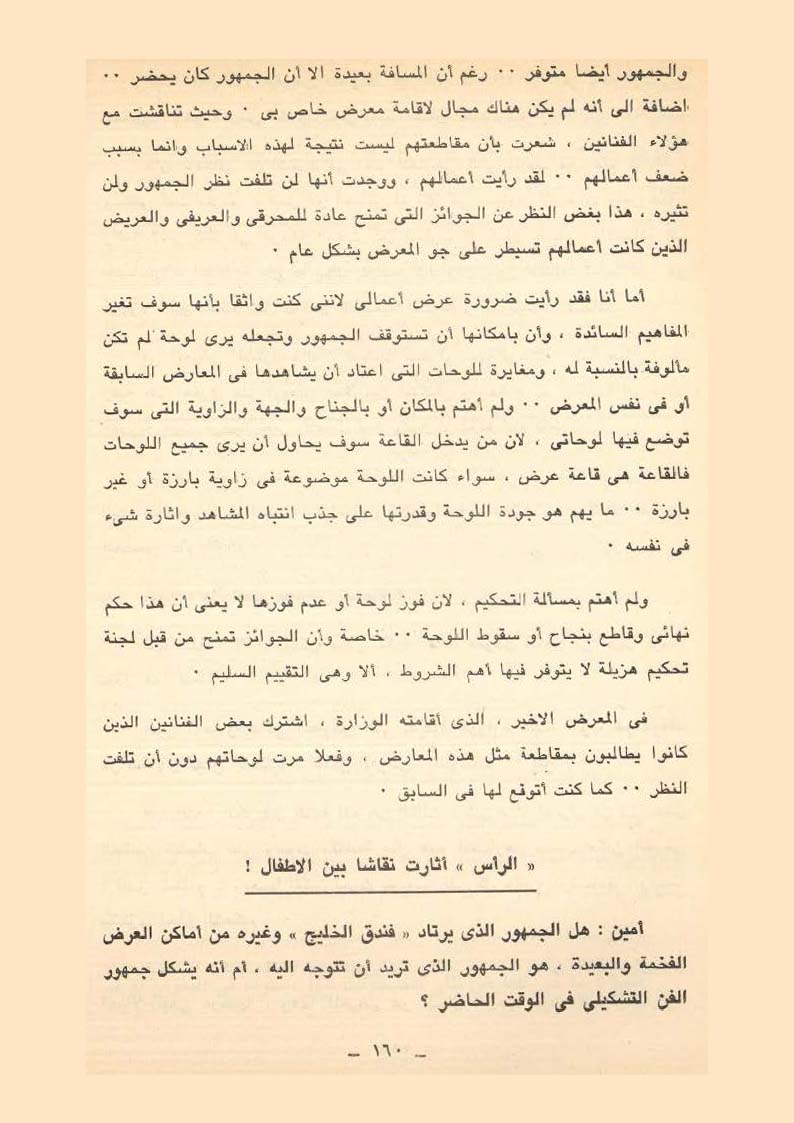 والجمهور أيضا متوفر ٠٠ رغم أن المسافة بعيدة الا أن الجمهور كان يحضر ٠٠
اضافة الى أنه لم يكن هناك مجال لاقامة معرض خاص بى ٠ وحيث تناقشت مع
هؤلاء الفنانين ، شعرت بأن مقاطعتهم ليست نتيجة لهذه الاسباب وانما بسبب
ضعف أعمالهم ٠٠ لقد رأيت أعمالهم ، ووجدت أنها لن تلفت نظر الجمهور ولن
تثيره ، هذا بغض النظر عن الجوائز التى تمنح عادة للمحرقى والعريفى والعريض
الذين كانت أعمالهم تسيطر على جو المعرض بشكل عام ٠
أما أنا فقد رأيت ضرورة عرض أعمالى لاننى كنت واثقا بأنها سوف تغير
المفاهيم السائدة ، وأن بامكانها أن تستوقف الجمهور وتجعله يرى لوحة لم تكن
مألوفة بالنسبة له ، ومغايرة للوحات التى اعتاد أن يشاهدها فى المعارض السابقة
أو فى نفس المعرض ٠٠ ولم أهتم بالمكان أو بالجناح والجهة والزاوية التى سوف
توضع فيها لوحاتى ، لان من يدخل القاعة سوف يحاول أن يرى جميع اللوحات
فالقاعة هى قاعة عرض ، سواء كانت اللوحة موضوعة فى زاوية بارزة أو غير
بارزة ٠٠ ما يهم هو جودة اللوحة وقدرتها على جذب انتباه المشاهد واثارة شىء
فى نفسه ٠
ولم أهتم بمسألة التحكيم ، لان فوز لوحة أو عدم فوزها لا يعنى أن هذا حكم
نهائى وقاطع بنجاح أو سقوط اللوحة ٠٠ خاصة وأن الجوائز تمنح من قبل لجنة
تحكيم هزيلة لا يتوفر فيها أهم الشروط ، ألا وهى التقييم السليم ٠
فى المعرض الاخير ، الذى أقامته الوزارة ، اشترك بعض الفنانين الذين
كانوا يطالبون بمقاطعة مثل هذه المعارض ، وفعلا مرت لوحاتهم دون أن تلفت
النظر ٠٠ كما كنت أتوقع لها فى السابق ٠
« الرأس » أثارت نقاشا بين الاطفال !
أمين : هل الجمهور الذى يرتاد « فندق الخليج » وغيره من أماكن العرض
الفخمة والبعيدة ، هو الجمهور الذى تريد أن تتوجه اليه ، أم أنه يشكل جمهور
الفن التشكيلي فى الوقت الحاضر ؟
– ١٦٠ –